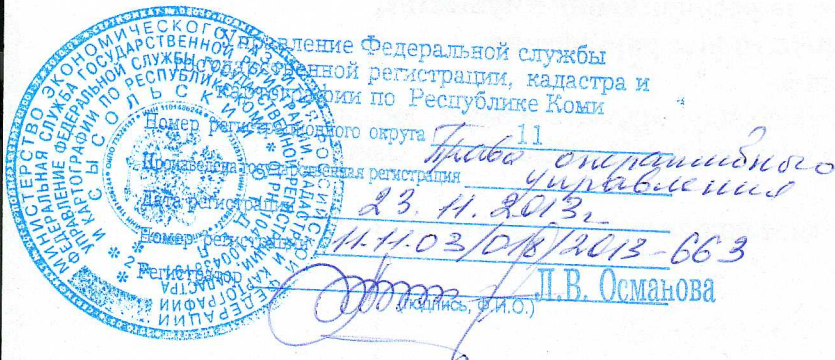 Управление Федеральной службы
государственной регистрации, кадастра и
картографии по Республике Коми
Номер регистрационного округа 11
Произведена государственная регистрация Право оперативного
управления
Дата регистрации 23.11.2013г.
Номер регистрации 11-11-03/018/2013-663
Регистратор Л.В. Османова
(подпись, Ф.И.О.)
МИНИСТЕРСТВО ЭКОНОМИЧЕСКОГО РАЗВИТИЯ РОССИЙСКОЙ ФЕДЕРАЦИИ
ФЕДЕРАЛЬНАЯ СЛУЖБА ГОСУДАРСТВЕННОЙ РЕГИСТРАЦИИ, КАДАСТРА И КАРТОГРАФИИ
УПРАВЛЕНИЕ ФЕДЕРАЛЬНОЙ СЛУЖБЫ ГОСУДАРСТВЕННОЙ РЕГИСТРАЦИИ, КАДАСТРА
И КАРТОГРАФИИ ПО РЕСПУБЛИКЕ КОМИ
СЫСОЛЬСКИЙ